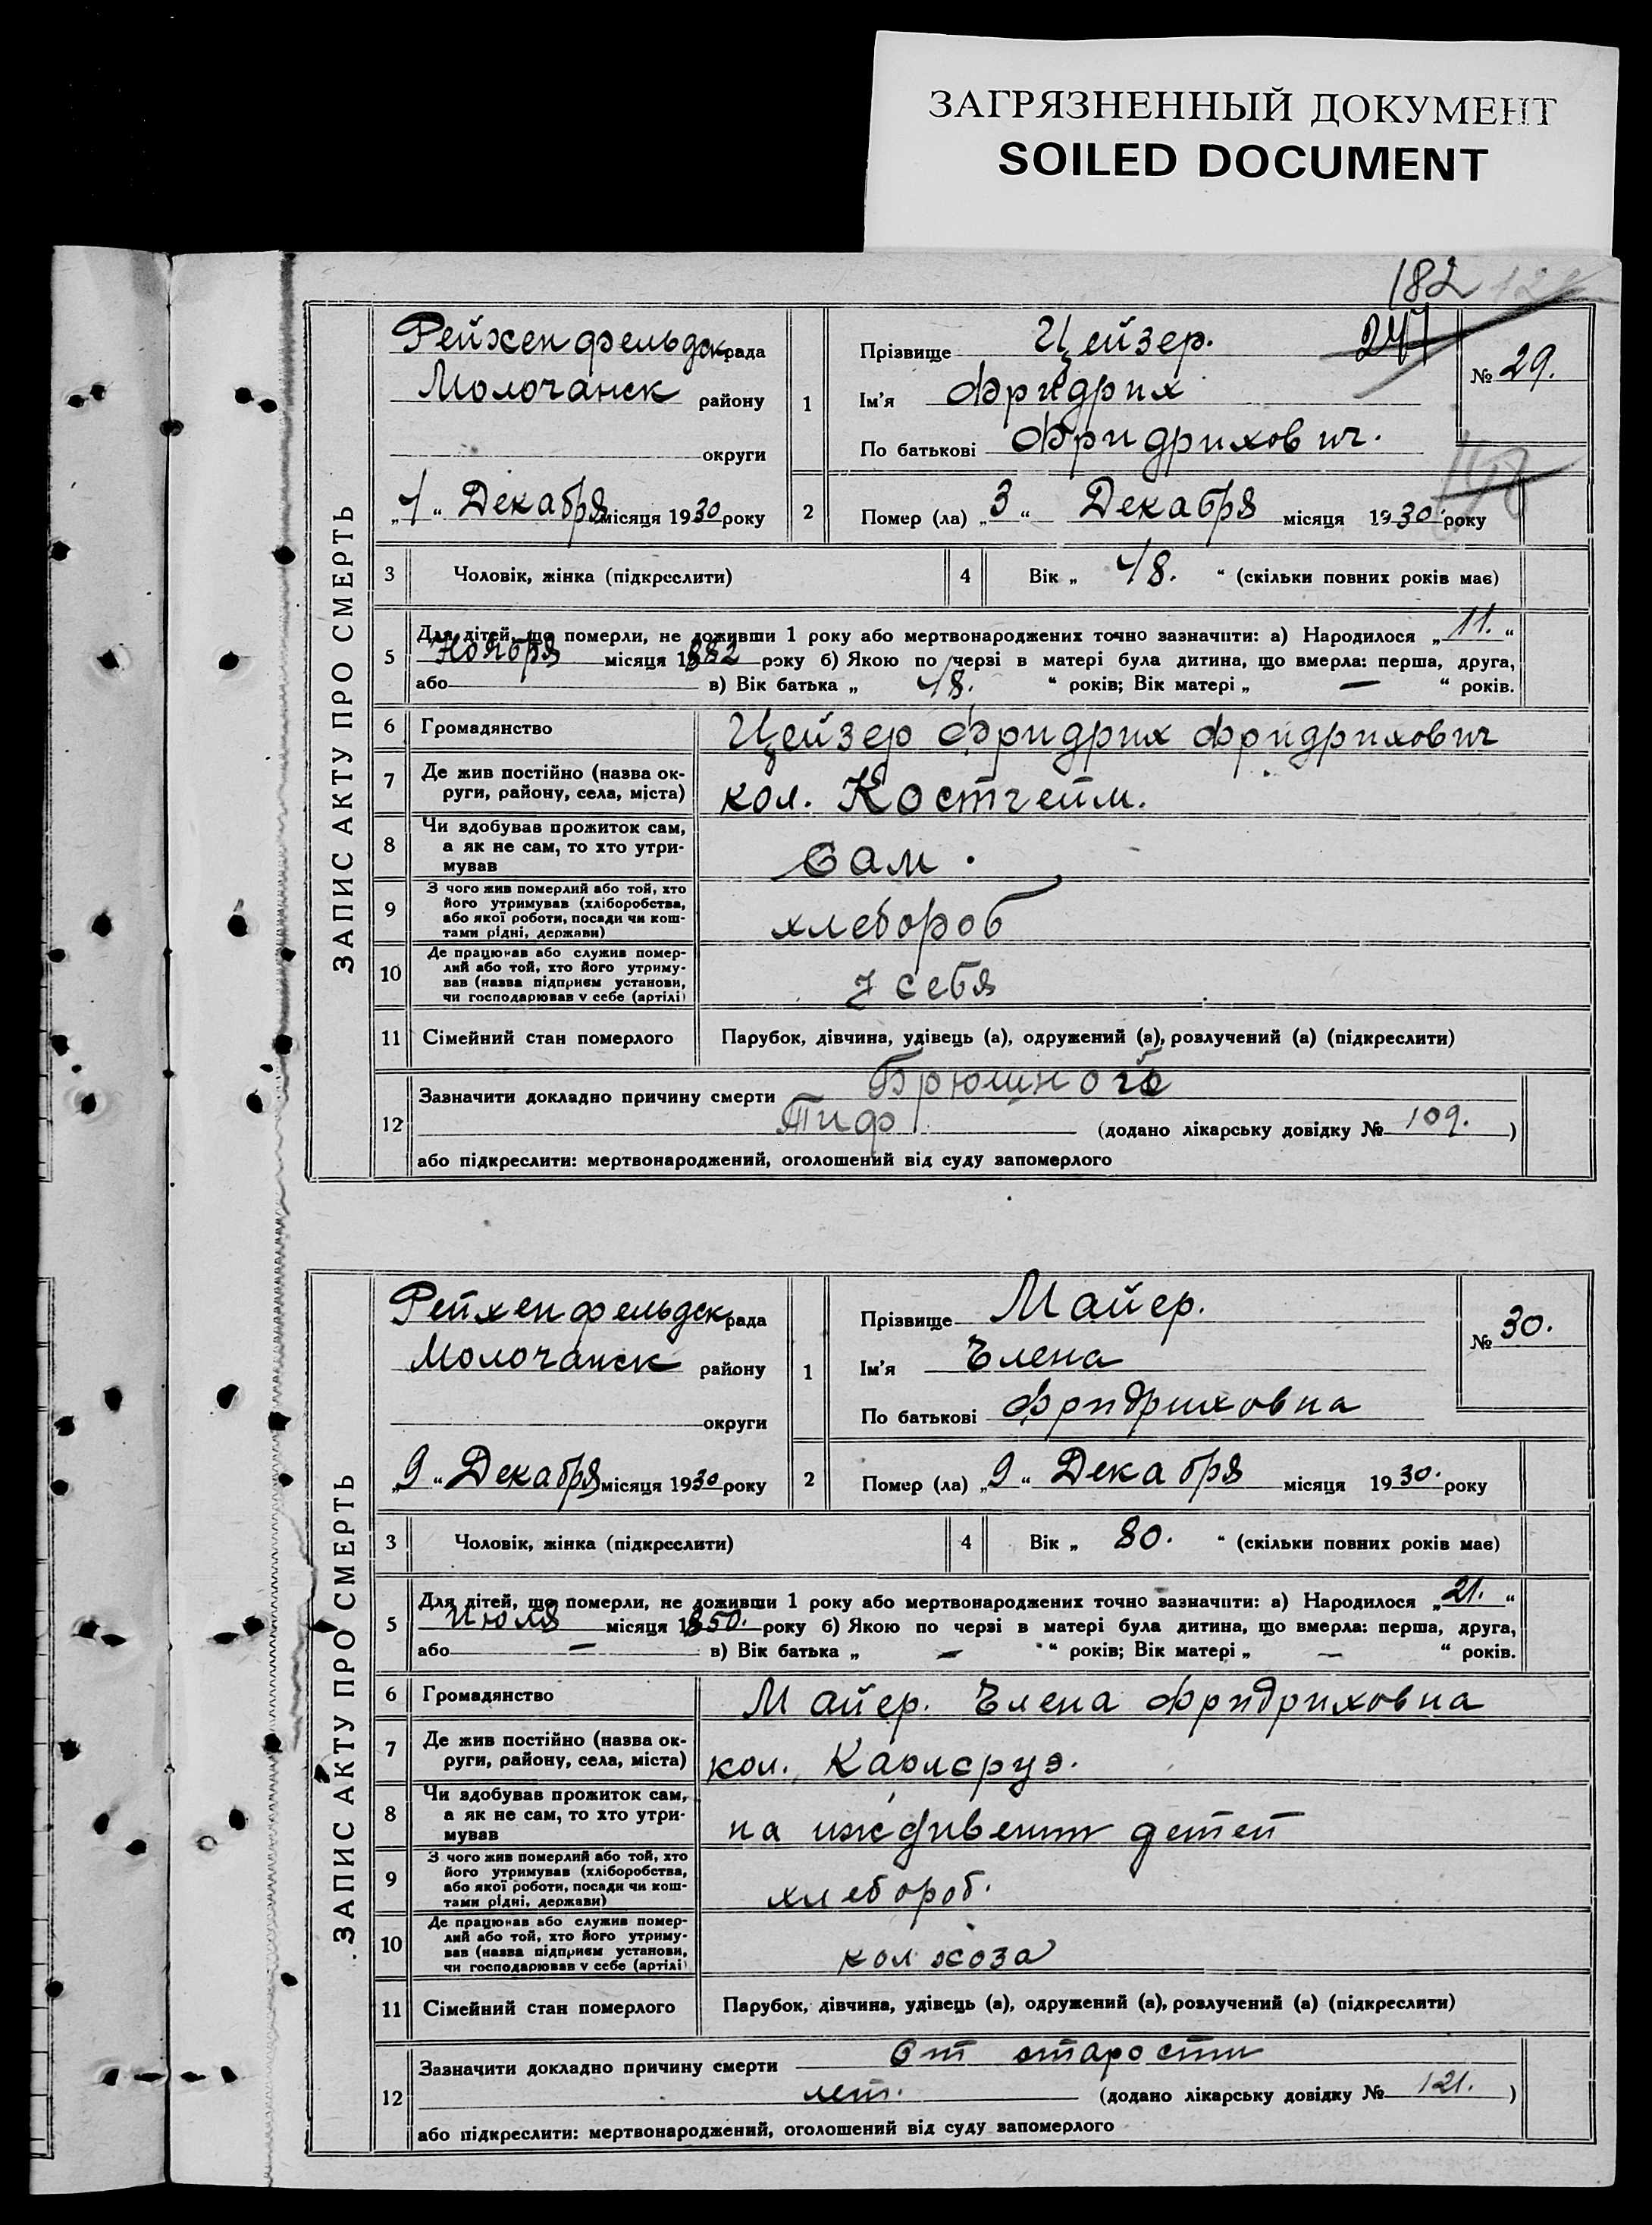 ЗАГРЯЗНЕННЫЙ ДОКУМЕНТ
SOILED DOCUMENT
182
247
ЗАПИС АКТУ ПРО СМЕРТЬ
Рейхенфельдск рада
Молочанск району
округи
1
Прізвище Цейзер.
Ім'я Фридрих
По батькові Фридрихович.
№ 29.
„4“ Декабря місяця 1930 року
2
Помер (ла) „3“ Декабря місяця 1930 року
3 Чоловік, жінка (підкреслити)
4 Вік „ 48. “ (скільки повних років має)
5 Для дітей, що померли, не доживши 1 року або мертвонароджених точно зазначити: а) Народилося „11.“
Ноября місяця 1882 року б) Якою по черзі в матері була дитина, що вмерла: перша, друга,
або в) Вік батька „ 48. “ років; Вік матері „ — “ років.
6 Громадянство Цейзер Фридрих Фридрихович
7 Де жив постійно (назва ок-
руги, району, села, міста) кол. Костгейм.
8 Чи здобував прожиток сам,
а як не сам, то хто утри-
мував сам.
9 З чого жив померлий або той, хто
його утримував (хліборобства,
або якої роботи, посади чи кош-
тами рідні, держави) хлебороб
10 Де працював або служив помер-
лий або той, хто його утриму-
вав (назва підприєм установи,
чи господарював у себе (артілі) у себя
11 Сімейний стан померлого Парубок, дівчина, удівець (а), одружений (а), розлучений (а) (підкреслити)
12 Зазначити докладно причину смерти Брюшной
Тиф (додано лікарську довідку № 109. )
або підкреслити: мертвонароджений, оголошений від суду запомерлого
ЗАПИС АКТУ ПРО СМЕРТЬ
Рейхенфельдск рада
Молочанск району
округи
1
Прізвище Майер.
Ім'я Елена
По батькові Фридриховна
№ 30.
„9“ Декабря місяця 1930 року
2
Помер (ла) „9“ Декабря місяця 1930. року
3 Чоловік, жінка (підкреслити)
4 Вік „ 80. “ (скільки повних років має)
5 Для дітей, що померли, не доживши 1 року або мертвонароджених точно зазначити: а) Народилося „21.“
Июля місяця 1850. року б) Якою по черзі в матері була дитина, що вмерла: перша, друга,
або — в) Вік батька „ — “ років; Вік матері „ — “ років.
6 Громадянство Майер. Елена Фридриховна
7 Де жив постійно (назва ок-
руги, району, села, міста) кол. Карлсруэ.
8 Чи здобував прожиток сам,
а як не сам, то хто утри-
мував на иждивении детей
9 З чого жив померлий або той, хто
його утримував (хліборобства,
або якої роботи, посади чи кош-
тами рідні, держави) хлебороб.
10 Де працював або служив помер-
лий або той, хто його утриму-
вав (назва підприєм установи,
чи господарював у себе (артілі) колхоза
11 Сімейний стан померлого Парубок, дівчина, удівець (а), одружений (а), розлучений (а) (підкреслити)
12 Зазначити докладно причину смерти От старости
лет. (додано лікарську довідку № 121. )
або підкреслити: мертвонароджений, оголошений від суду запомерлого